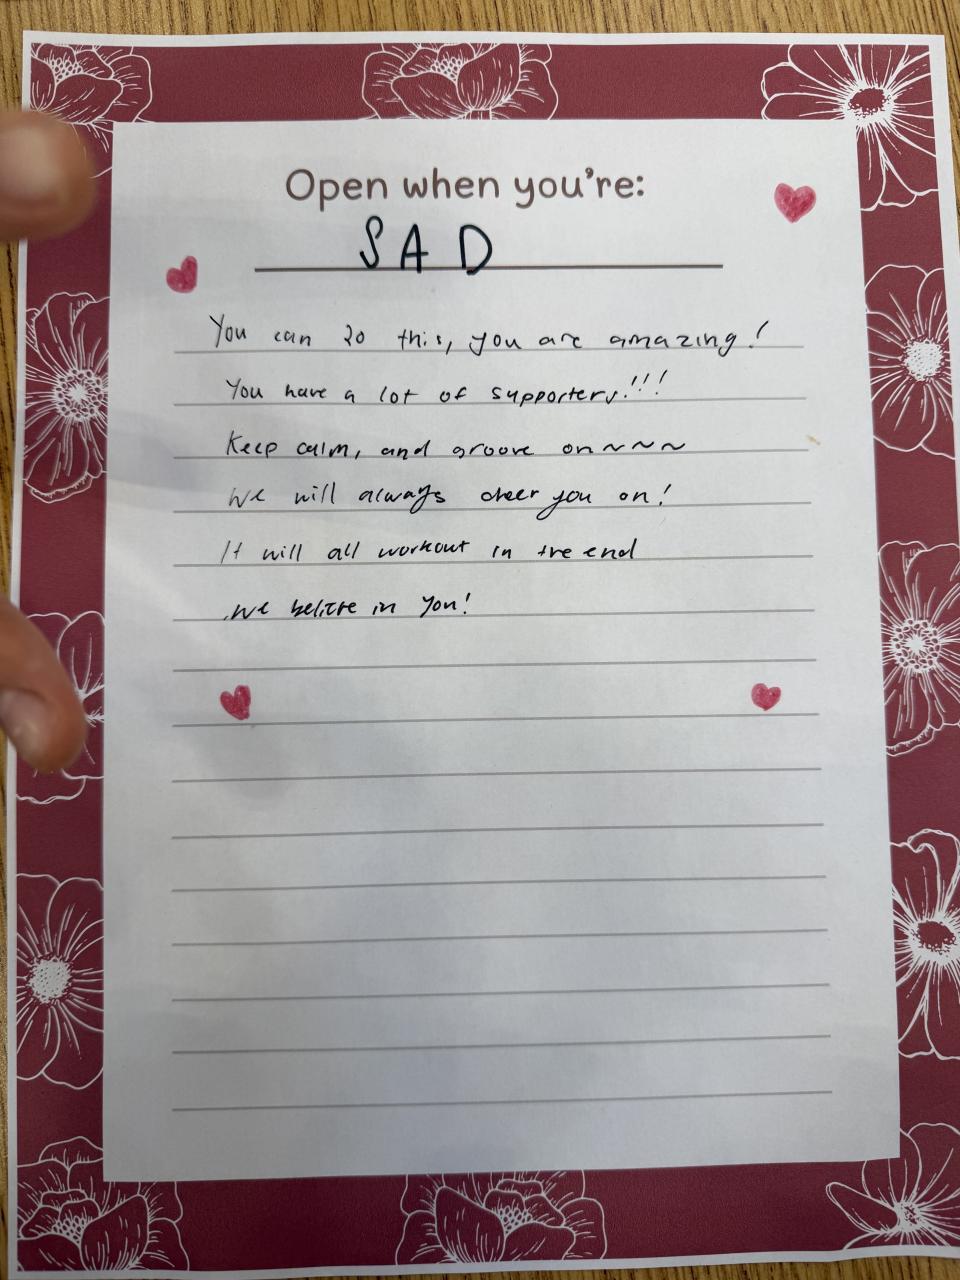 Open when you're:
SAD
You can do this, you are amazing!
You have a lot of supporters!!!
Keep calm, and groove on~~~
We will always cheer you on!
It will all workout in the end
We believe in you!